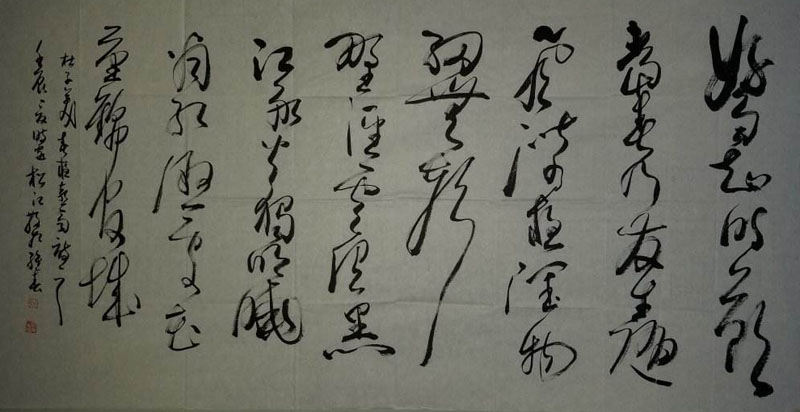 好雨知時節
當春乃發生隨
風潛入夜潤物
細無聲
野徑雲俱黑
江船火獨明曉
看紅濕處花
重錦官城
杜子美春夜喜雨
壬辰 松江